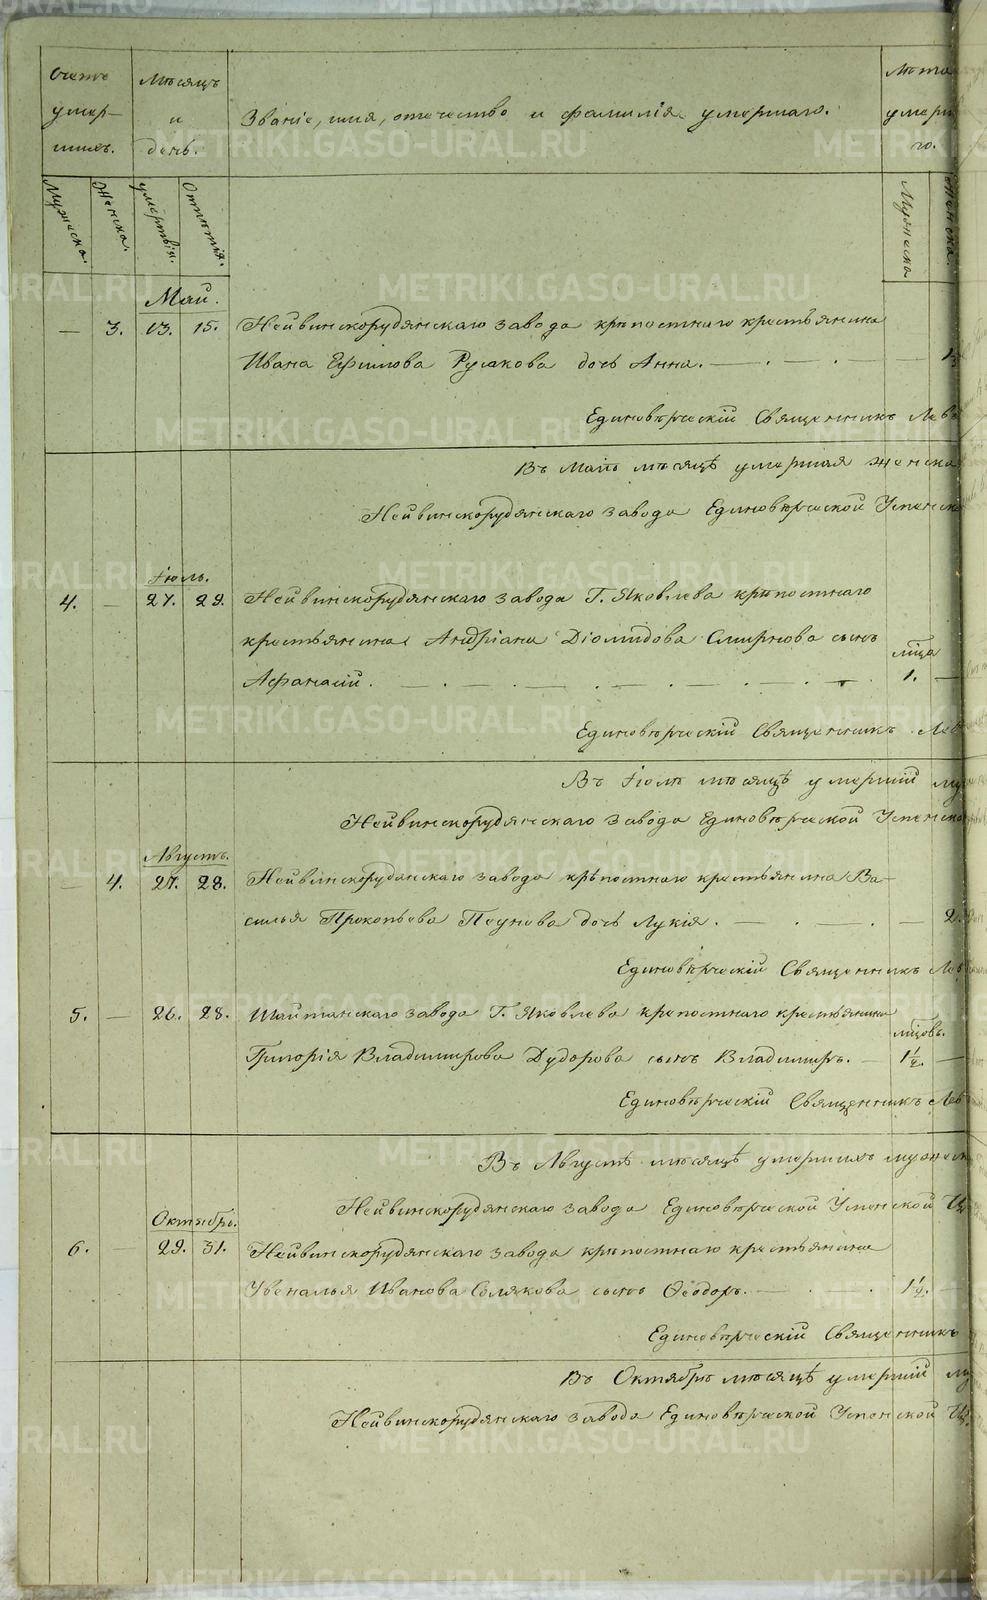 Счетъ умер-шихъ.
Мѣсяцъ и день.
Званіе, имя, отчество и фамилія умершаго.
Лѣта умерш го.
Мужеска.
Женска.
умертвія.
Отпѣтія.
Мужеска
Женска.
Май.
— 3. 13. 15. Нейвинскорудянскаго завода крѣпостнаго крестьянина
Ивана Ефимова Русакова дочь Анна.
Единовѣрческій Священникъ Лев
Въ Маѣ мѣсяцѣ умершая женска
Нейвинскорудянскаго завода Единовѣрческой Успенско
Іюль.
4. — 27. 29. Нейвинскорудянскаго завода Г. Яковлева крѣпостнаго
крестьянина Андріана Діомидова Смирнова сынъ
мца
Афанасій. 1. —
Единовѣрческій Священникъ Лев
Въ Іюлѣ мѣсяцѣ умершій му
Нейвинскорудянскаго завода Единовѣрческой Успенско
Августъ.
— 4. 27. 28. Нейвинскорудянскаго завода крѣпостнаго крестьянина Ва-
силья Прокопьева Пеунова дочь Лукія. — 2.
Единовѣрческій Священникъ Лев
5. — 26. 28. Шайтанскаго завода Г. Яковлева крепостнаго крестьянина
мцовъ.
Григорія Владимирова Дудорова сынъ Владимиръ. — 1½. —
Единовѣрческій Священникъ Лев
Въ Августѣ мѣсяцѣ умершихъ мужеск
Нейвинскорудянскаго завода Единовѣрческой Успенской Ц
Октябрь.
6. — 29. 31. Нейвинскорудянскаго завода крѣпостнаго крестьянина
Увеналья Иванова Солякова сынъ Ѳеодоръ. — 1½. —
Единовѣрческій Священникъ
Въ Октябрѣ мѣсяцѣ умершій му
Нейвинскорудянскаго завода Единовѣрческой Успенской Ц
METRIKI.GASO-URAL.RU